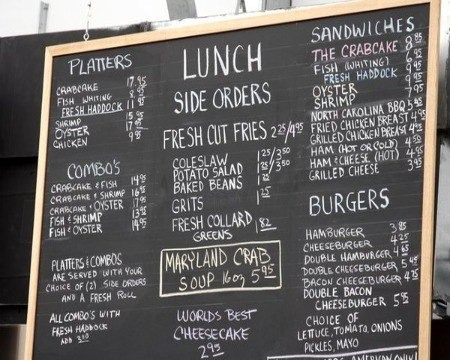 PLATTERS
CRABCAKE 17.95
FISH WHITING 8.95
FRESH HADDOCK 11.95
SHRIMP 15.95
OYSTER 17.95
CHICKEN 9.95
COMBO'S
CRABCAKE & FISH 14.95
CRABCAKE & SHRIMP 16.95
CRABCAKE & OYSTER 17.95
FISH & SHRIMP 13.95
FISH & OYSTER 14.95
PLATTERS & COMBOS
ARE SERVED WITH YOUR
CHOICE OF (2) SIDE ORDERS
AND A FRESH ROLL
ALL COMBO'S WITH
FRESH HADDOCK
ADD 3.00
LUNCH
SIDE ORDERS
FRESH CUT FRIES 2.25/4.95
COLESLAW 1.25/3.50
POTATO SALAD 1.25/3.50
BAKED BEANS 1.25
GRITS 1.25
FRESH COLLARD 1.82
GREENS
MARYLAND CRAB
SOUP 16oz 5.95
WORLDS BEST
CHEESECAKE
2.95
SANDWICHES
THE CRABCAKE 8.95
FISH (WHITING)
FRESH HADDOCK
OYSTER
SHRIMP 7.95
NORTH CAROLINA BBQ
FRIED CHICKEN BREAST
GRILLED CHICKEN BREAST
HAM (HOT OR COLD)
HAM & CHEESE (HOT)
GRILLED CHEESE 3.95
BURGERS
HAMBURGER 3.85
CHEESEBURGER 4.25
DOUBLE HAMBURGER 4.65
DOUBLE CHEESEBURGER 5.45
BACON CHEESEBURGER 4.25
DOUBLE BACON
CHEESEBURGER
CHOICE OF
LETTUCE, TOMATO, ONIONS
PICKLES, MAYO